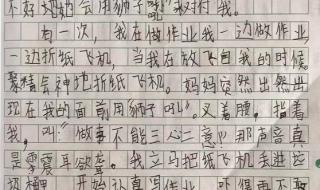 不好妈妈会用狮子吼"敷付我。
有一次，我在做作业我一边做作业
一边折纸飞机，当我在放飞自我的时候
聚精会神地折纸飞机。妈妈突然出然出
现在我的面前用"狮子吼"。叉着腰，指着
我，叫："做事不能三心二意！"那声音真
是震耳欲聋。我立马把纸飞机丢进远
开始认真写作业